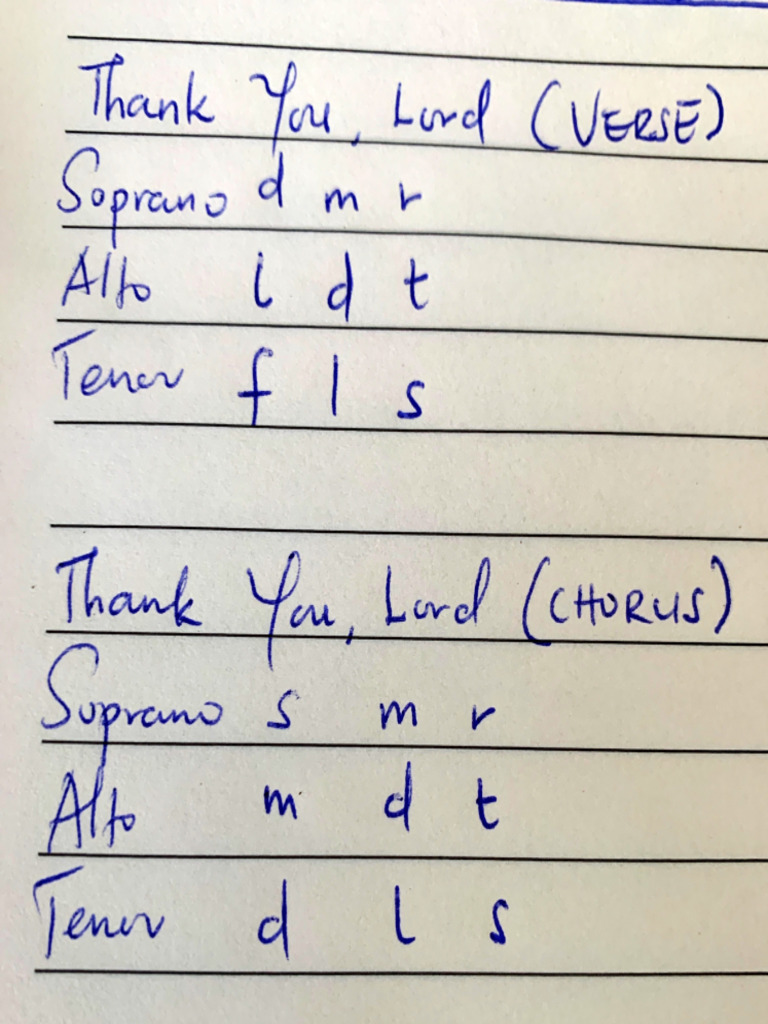 Thank You, Lord (VERSE)
Soprano d m r
Alto l d t
Tenor f l s
Thank You, Lord (CHORUS)
Soprano s m r
Alto m d t
Tenor d l s